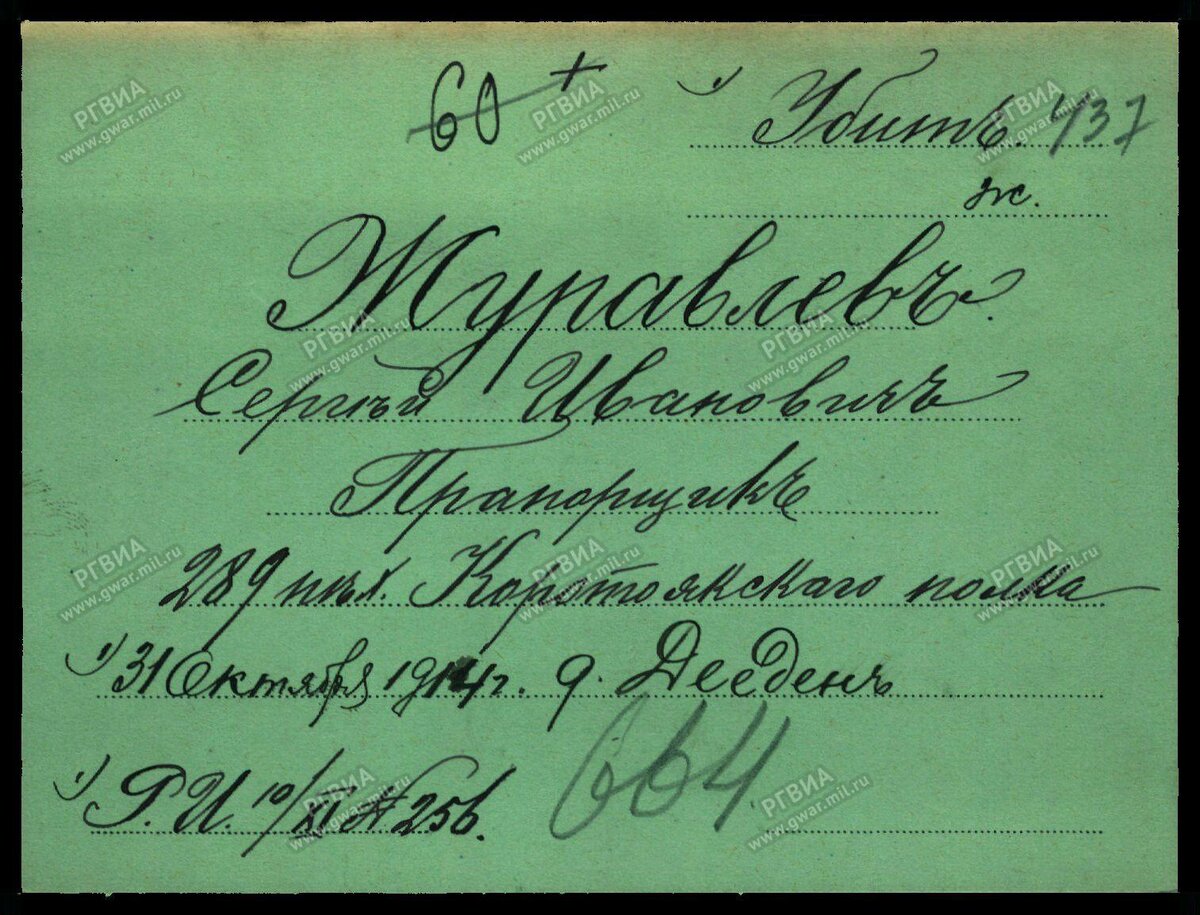 60 +
1) Убитъ. 437
ж.
Журавлевъ.
Сергѣй Ивановичъ
Прапорщикъ
289 пѣх. Коротоякскаго полка
1) 31 Октября 1914 г. д.
1) Р.И. 10/XI № 256.
664
РГВИА
www.gwar.mil.ru